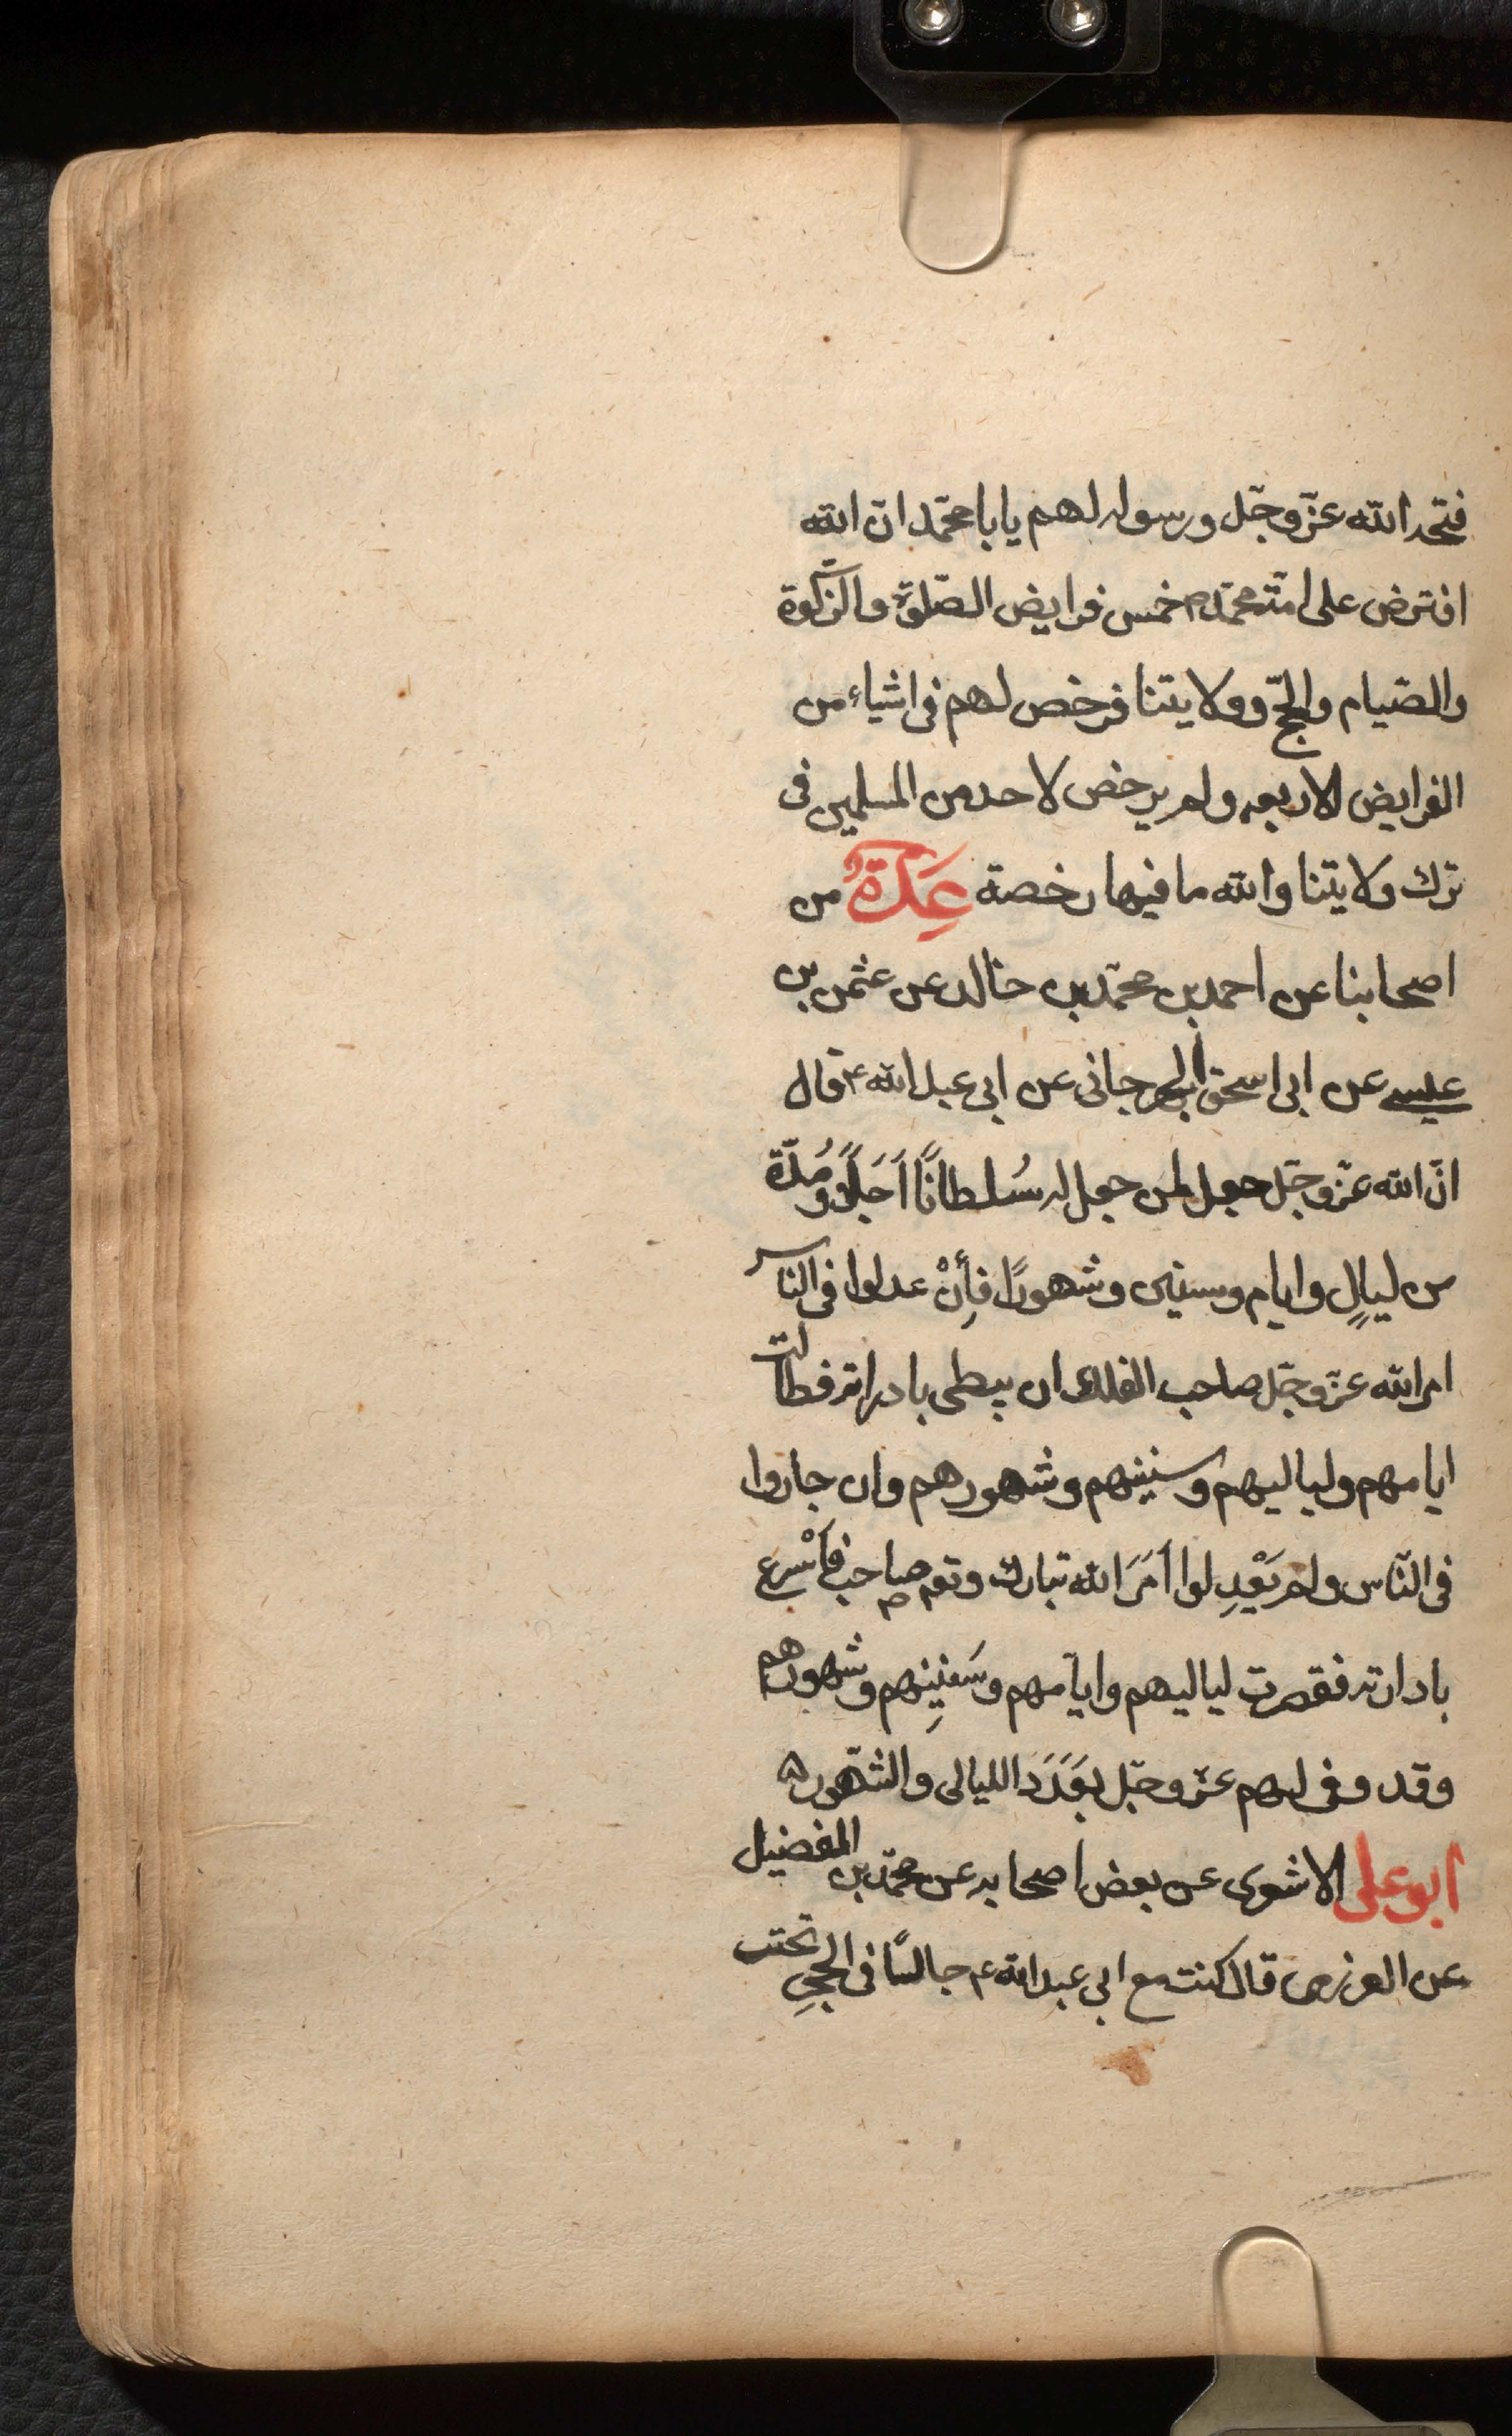 فتحد الله عزّ وجّل ورسوله لهم يابا محمّد انّ الله
افترض على امّة محمّد ص خمس فرايض الصّلوة والزّكوة
والصّيام والحجّ وولايتنا فرخص لهم فى اشياء من
الفرايض الاربعه ولم يرخص لاحد من المسلمين فى
ترك ولايتنا والله ما فيها رخصة عِدَّةٌ من
اصحابنا عن احمد بن محمّد بن خالد عن عثمن بن
عيسى عن ابى اسحق الجرجانى عن ابى عبد الله ع قال
انّ الله عزّ وجّل جعل لمن جعل له سُلطانًا اَجَلًا وَمُدّة
من ليالٍ وايام وسنين وشهورًا فأِنْ عدلوا فى النّاس
امر الله عزّ وجّل صاحب الفلك ان يبطى بادراته فطالت
ايامهم ولياليهم وسنينهم وشهورهم وان جاروا
فى النّاس ولم يَعْدِلوا أمَرَ الله تبارك وتع صاحبه فأسْرع
بادارته فقصرت لياليهم وايّامهم وسَنِينِهم وشهورهم
وقد وفى لهم عزّ وجّل بعَدَدَ الليالى والشّهور ه
ابو على الاشعرى عن بعض اصحابه عن محمّد بن المفضيل
عن العزرمى قال كنت مع ابى عبد الله ع جالسًا فى الحجرِ تحت